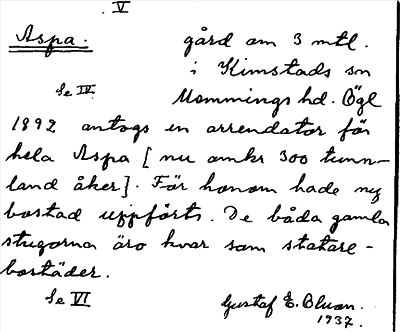 V
Aspa. gård om 3 mtl.
i Kimstads sn
Se IV. Memmings hd. Ögl
1892 antogs en arrendator för
hela Aspa [nu omkr 300 tunn-
land åker]. För honom hade ny
bostad uppförts. De båda gamla
stugorna äro kvar som statare-
bostäder.
Se VI Gustaf E. Bluan.
1932.